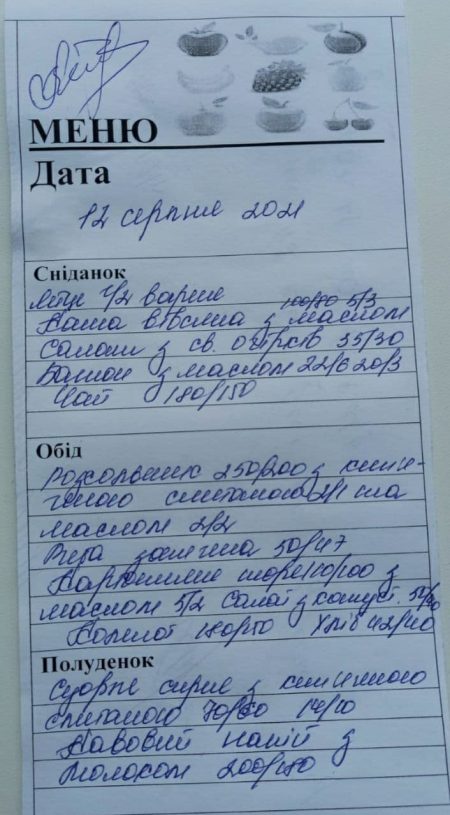 МЕНЮ
Дата
12 серпня 2021
Сніданок
Яйце 1/2 варене
Каша вівсяна з маслом 100/80 5/3
Салат з св. огірків 35/30
Батон з маслом 22/6 20/3
Чай 180/150
Обід
Розсольник 250/200 з кип'я-
ченою сметаною 2/1 та
маслом 2/2
Риба запечена 50/47
Картопляне пюре 110/100 з
маслом 5/2 Салат з капуст.
Компот 180/150 Хліб 42/40
Полуденок
сирне з кип'яченою
сметаною
Кавовий напій з
молоком 200/180